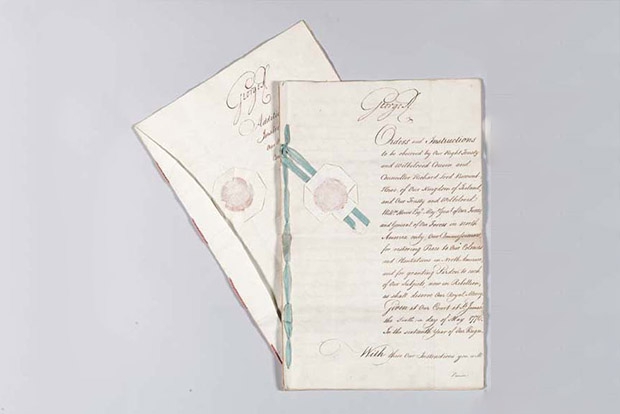 George R
Additi
George R.
Orders and Instructions
to be observed by Our Right Trusty
and Welbeloved Cousin and
Councillor Richard Lord Viscount
Howe of Our Kingdom of Ireland,
and Our Trusty and Welbeloved
Willm. Howe Esqr. Majr. Genl. of Our Forces,
and General of Our Forces in North
America only, Our Commissioners
for restoring Peace to Our Colonies
and Plantations in North America,
and for granting Pardon to such
of Our Subjects now in Rebellion,
as shall deserve Our Royal Mercy.
Given at Our Court at St. James's
the Sixth day of May 1776.
In the sixteenth Year of Our Reign.
With these Our Instructions you will